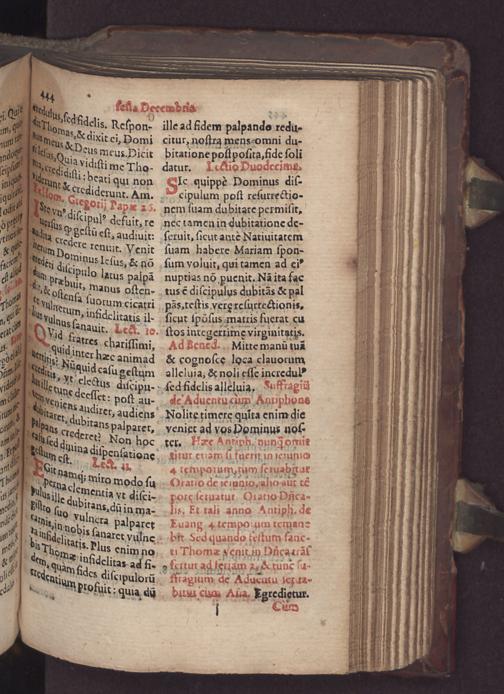 444
Festa Decembris
credulus, sed fidelis. Respon-
dit Thomas, & dixit ei, Domi
nus meus & Deus meus. Dicit
ei Iesus, Quia vidisti me Tho-
ma, credidisti: beati qui non
viderunt & crediderunt. Am.
Gregorij Papæ 26.
Iste vn⁹ discipul⁹ defuit, re
uersus q̃ gestũ est, audiuit:
audita credere renuit. Venit
iterum Dominus Iesus, & nõ
credẽti discipulo latus palpã
dum præbuit, manus osten-
dit, & ostensa suorum cicatri
ce vulnerum, infidelitatis il-
lius vulnus sanauit. Lect. 10.
QVid fratres charissimi,
quid inter hæc animad
uertitis? Nũquid casu gestum
creditis, vt electus discipu-
lus ille tunc deesset: post au-
tem veniens audiret, audiens
dubitaret, dubitans palparet,
palpans crederet? Non hoc
casu sed diuina dispensatione
gestum est. Lect. 11.
EGit namq; miro modo su
perna clementia vt disci-
pulus ille dubitans, dũ in ma-
gistro suo vulnera palparet
carnis, in nobis sanaret vulne
ra infidelitatis. Plus enim no
bis Thomæ infidelitas ad fi-
dem, quàm fides discipulorũ
credentium profuit: quia dũ
ille ad fidem palpando redu-
citur, nostra mens omni du-
bitatione postposita, fide soli
datur. Lectio Duodecima.
SIc quippè Dominus dis-
cipulum post resurrectio-
nem suam dubitare permisit,
nec tamen in dubitatione de-
seruit, sicut antè Natiuitatem
suam habere Mariam spon-
sum voluit, qui tamen ad ei⁹
nuptias nõ puenit. Nã ita fac
tus ẽ discipulus dubitãs & pal
pãs, testis verę resurrectionis,
sicut spõsus matris fuerat cu
stos integerrimę virginitatis.
Ad Bened. Mitte manũ tuã
& cognosce loca clauorum
alleluia, & noli esse incredul⁹
sed fidelis alleluia. Suffragiũ
de Aduentu cum Antiphona
Nolite timere quita enim die
veniet ad vos Dominus nos-
ter. Hæc Antiph. nunq̃ omit
titur etiam si fuerit in ieiunio
4 temporum, tum seruabitur
Oratio de ieiunio, alio aut tẽ
pore seruatur. Oratio Dñica-
lis, Et tali anno Antiph. de
Euang 4 temporum
bit Sed quando festum sanc-
ti Thomæ venit in Dñica
fertur ad feriam 2, & tunc su-
ffragium de Aduẽtu serua-
bitur cum Aña. Egredietur.
Cum